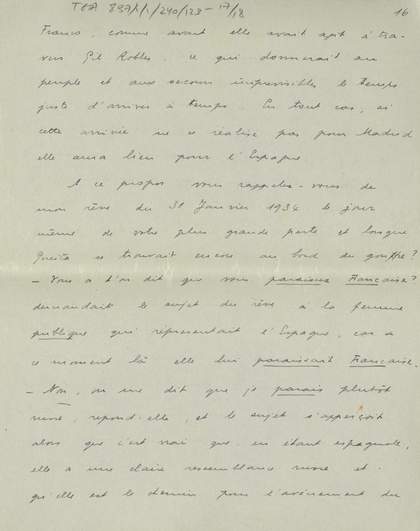 TGA 897/1/1/240/123-17/18
16
Franco, comme avant elle avait agit à tra-
vers Gil Robles, ce qui donnerait au
peuple et aux secours imprévisibles le temps
juste d'arriver à temps. En tout cas, si
cette arrivée ne se réalise pas pour Madrid
elle aura lieu pour l'Espagne
A ce propos vous rappelez-vous de
mon rêve du 31 Janvier 1934 le jour
même de votre plus grande perte et lorsque
se trouvait encore au bord du gouffre?
- Vous a t'on dit que vous paraissiez Française?
demandait le sujet du rêve à la femme
publique qui représentait l'Espagne, car à
ce moment là elle lui paraissait Française.
- Non, on me dit que je parais plutôt
russe, répond elle, et le sujet s'aperçoit
alors que c'est vrai que en étant espagnole,
elle a une claire ressemblance russe et
qu'elle est le chemin pour l'avènement du